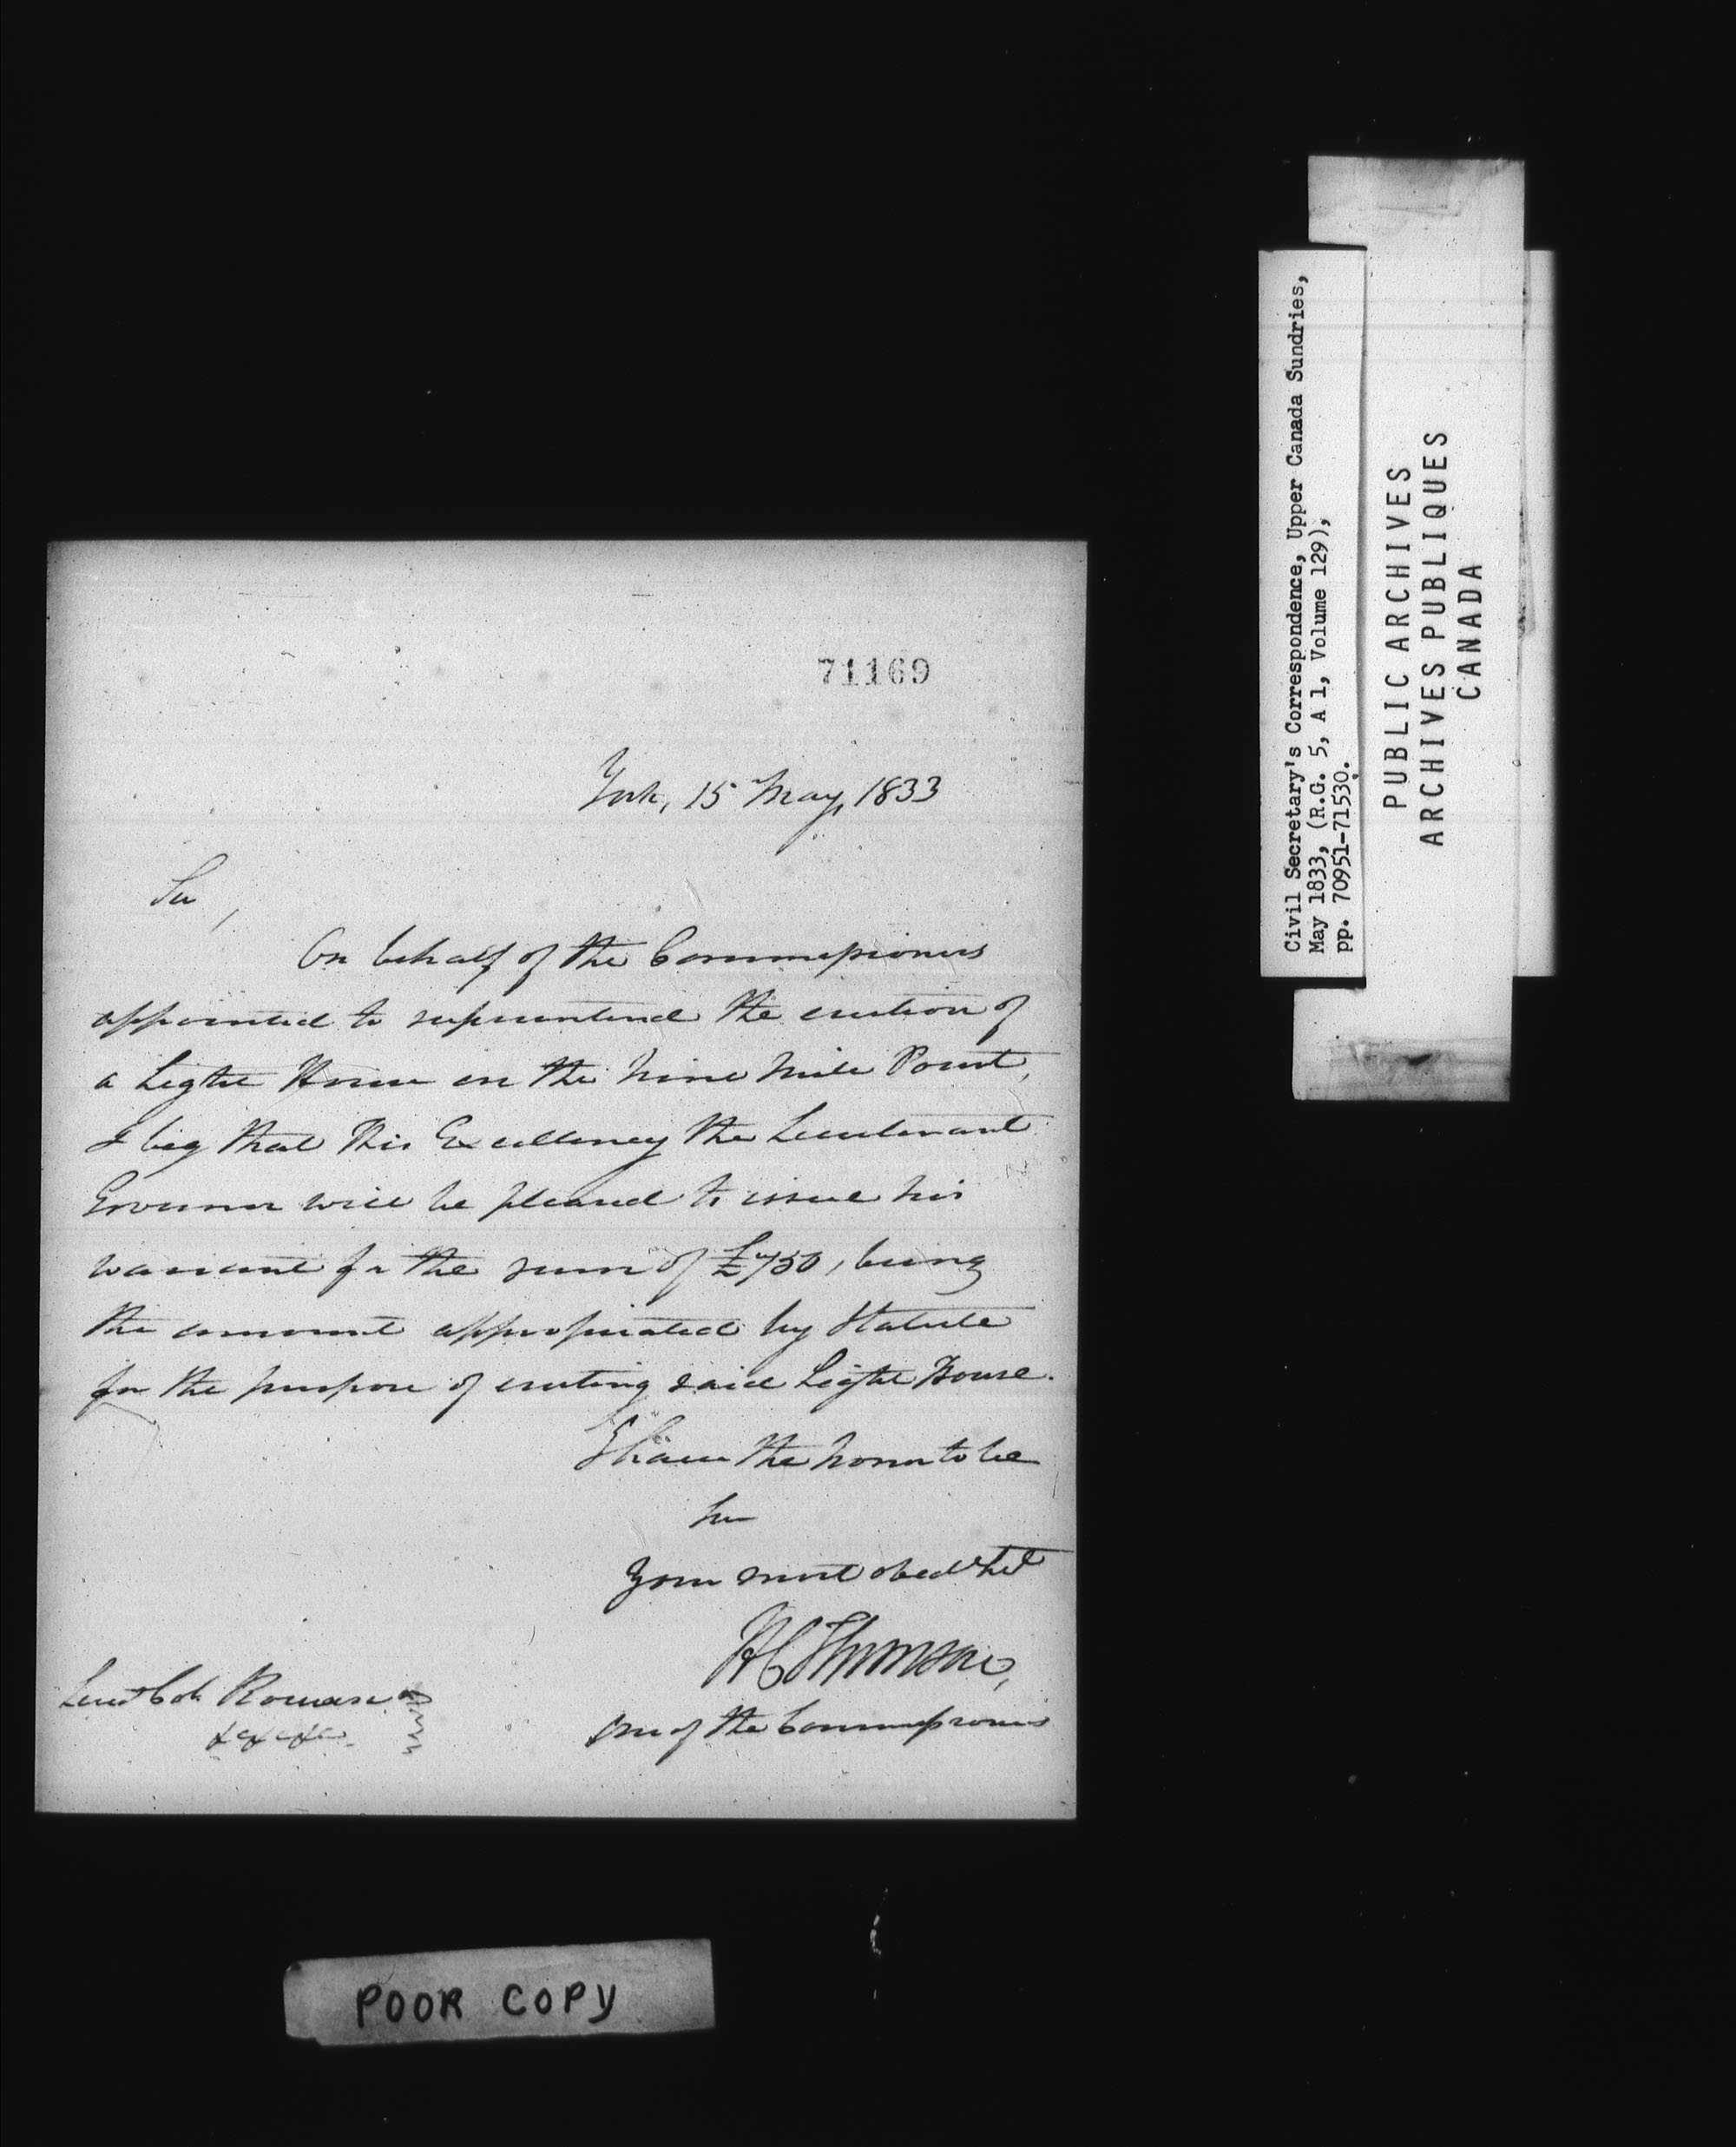 71169
York, 15 May, 1833
Sir,
On behalf of the Commissioners
appointed to superintend the erection of
a Light House on the Nine Mile Point,
I beg that His Excellency the Lieutenant
Governor will be pleased to issue his
warrant for the sum of £750, being
the amount appropriated by Statute
for the purpose of erecting said Light House.
I have the honor to be
Sir
Your most obedt Svt
H C Thomson,
One of the Commissioners
Lieut Col. Rowan
&c &c &c.
Civil Secretary's Correspondence, Upper Canada Sundries,
May 1833, (R.G. 5, A 1, Volume 129),
pp. 70951-71530.
PUBLIC ARCHIVES
ARCHIVES PUBLIQUES
CANADA
POOR COPY